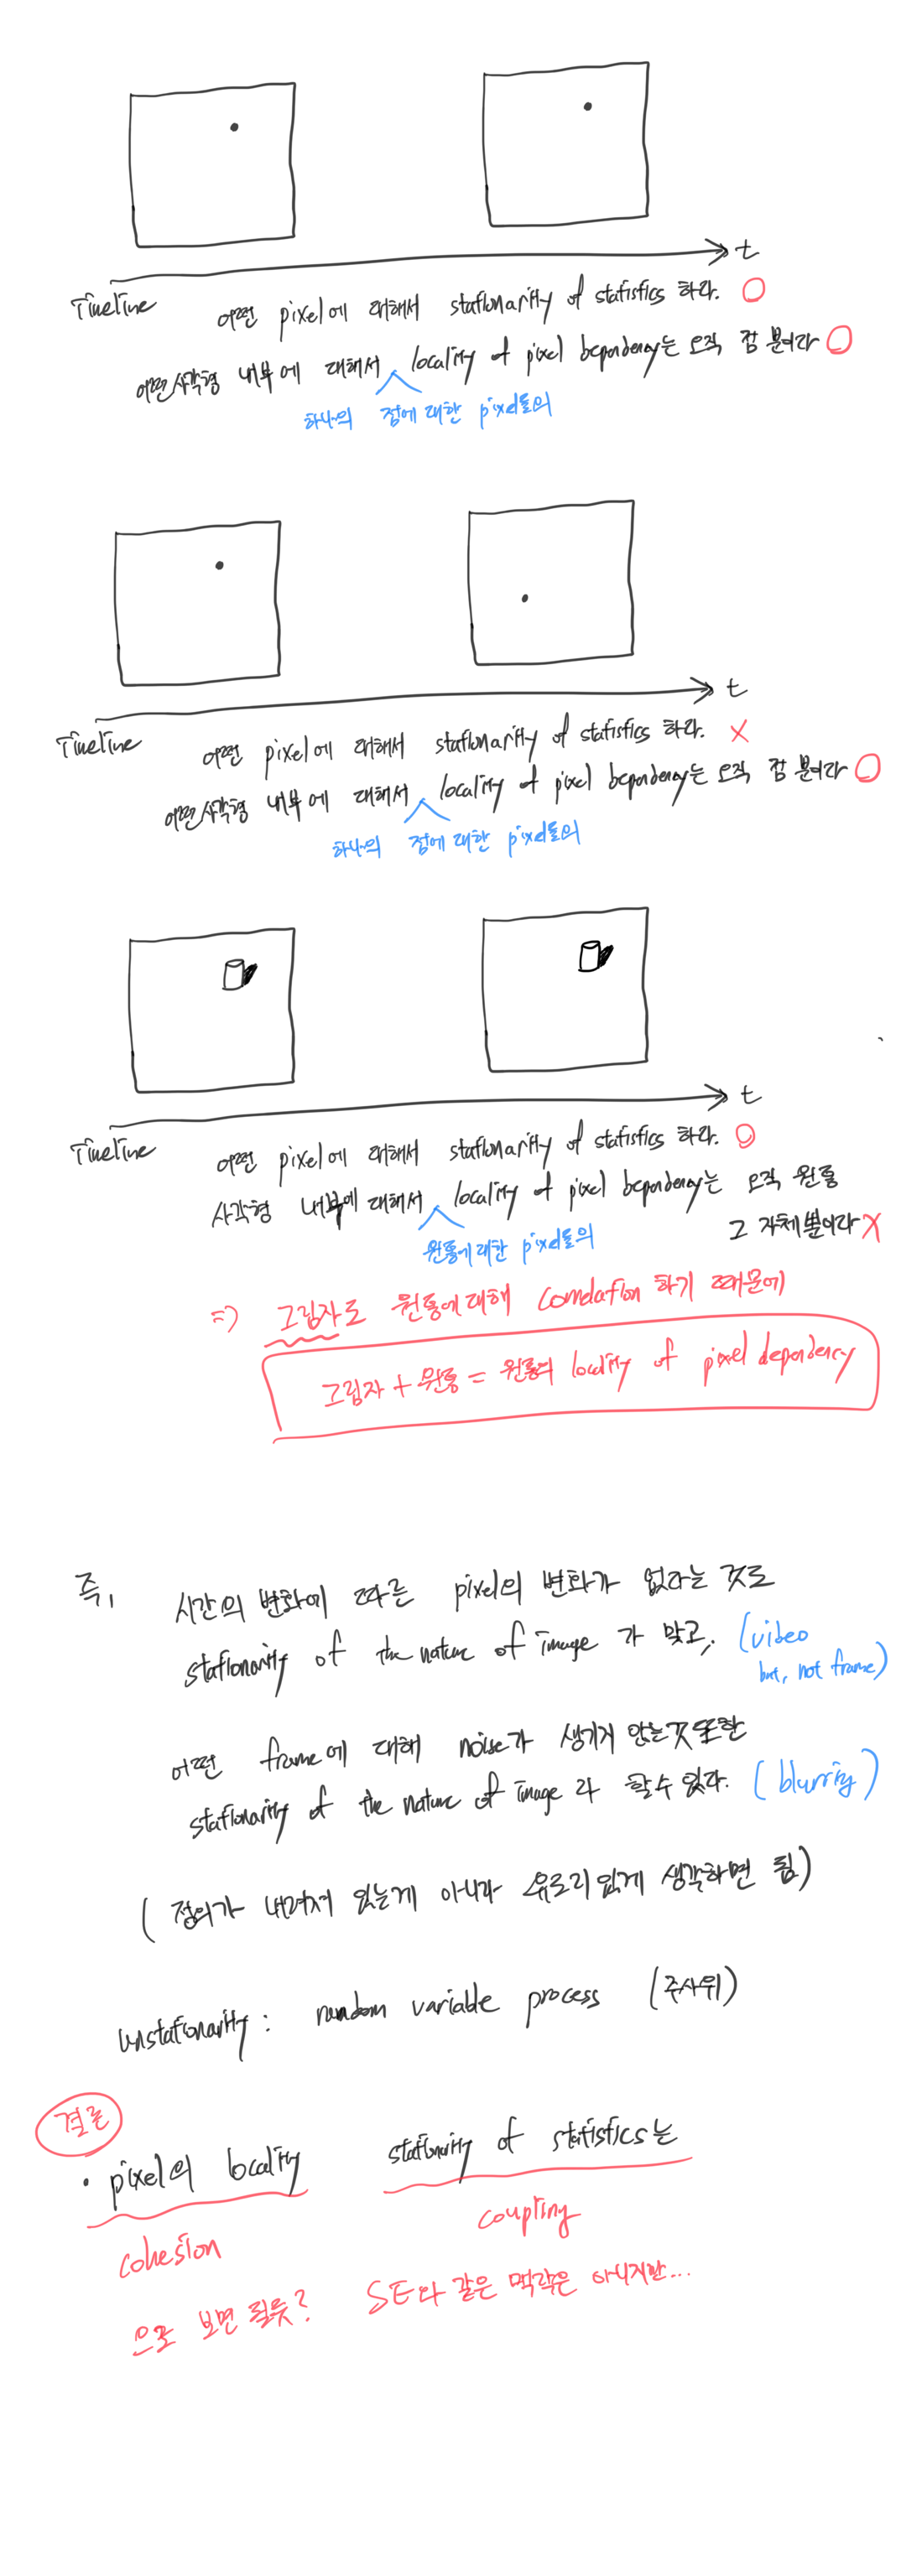 t
Timeline
어떤 pixel에 대해서 stationarity of statistics 하다. O
어떤 사각형 내부에 대해서 locality of pixel dependency는 오직 점 뿐이다 O
하나의 점에 대한 pixel들의
t
Timeline
어떤 pixel에 대해서 stationarity of statistics 하다. X
어떤 사각형 내부에 대해서 locality of pixel dependency는 오직 점 뿐이다 O
하나의 점에 대한 pixel들의
t
Timeline
어떤 pixel에 대해서 stationarity of statistics 하다. O
사각형 내부에 대해서 locality of pixel dependency는 오직 원통
그 자체뿐이다 X
원통에 대한 pixel들의
=> 그림자도 원통에 대해 correlation 하기 때문에
그림자 + 원통 = 원통의 locality of pixel dependency
즉, 시간의 변화에 따른 pixel의 변화가 없다는 것도
stationarity of the nature of image 가 맞고, (video
but, not frame)
어떤 frame에 대해 noise가 생기지 않는것 또한
stationarity of the nature of image 라 할 수 있다. (blurring)
(정의가 내려져 있는게 아니라 유도리있게 생각하면 됨)
unstationarity : random variable process (주사위)
결론
· pixel의 locality stationarity of statistics는
cohesion coupling
으로 보면 될듯? SE와 같은 맥락은 아니지만...